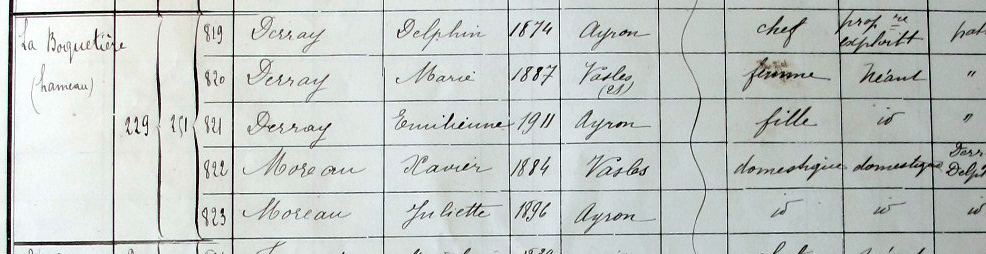 La Boquetière 819 Derray Delphin 1874 Ayron chef prop re exploitt pat
(hameau) 820 Derray Marie 1887 Vasles (2S) femme Néant "
229 251 821 Derray Emilienne 1911 Ayron fille id "
822 Moreau Xavier 1884 Vasles domestique domestique Derr Delph
823 Moreau Juliette 1896 Ayron id id id